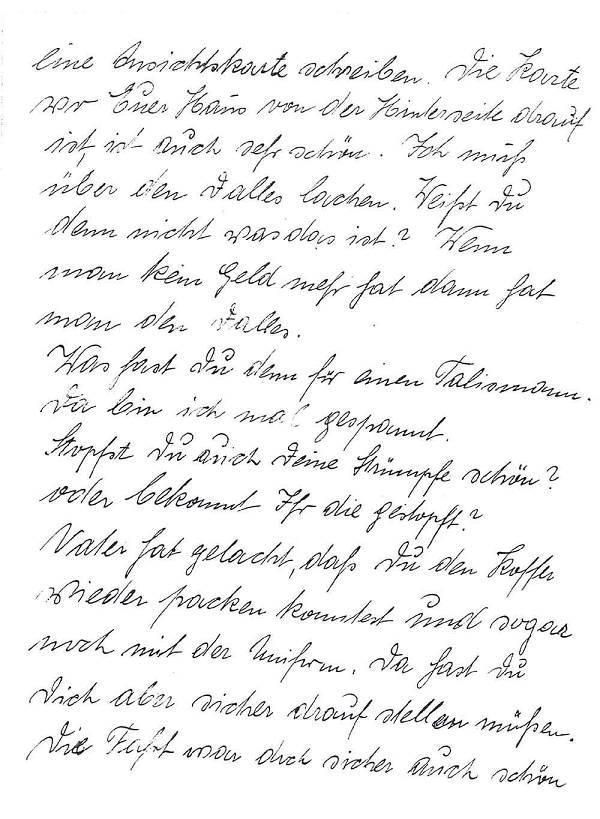 eine Ansichtskarte schreiben. Die Karte
wo Euer Haus von der Hinterseite drauf
ist, ist auch sehr schön. Ich muß
über den Dalles lachen. Weißt Du
denn nicht was das ist? Wenn
man kein Geld mehr hat dann hat
man den Dalles.
Was hast Du denn für einen Talismann.
Da bin ich mal gespannt.
Stopfst Du auch Deine Strümpfe schön?
oder bekommt Ihr die gestopft?
Vater hat gelacht, daß Du den Koffer
wieder packen konntest und sogar
noch mit der Uniform. Da hast Du
Dich aber sicher drauf stellen müßen.
Die Fahrt war doch sicher auch schön